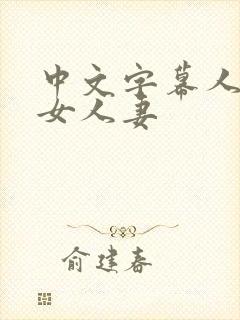 中文字幕人
女人妻
俞建春